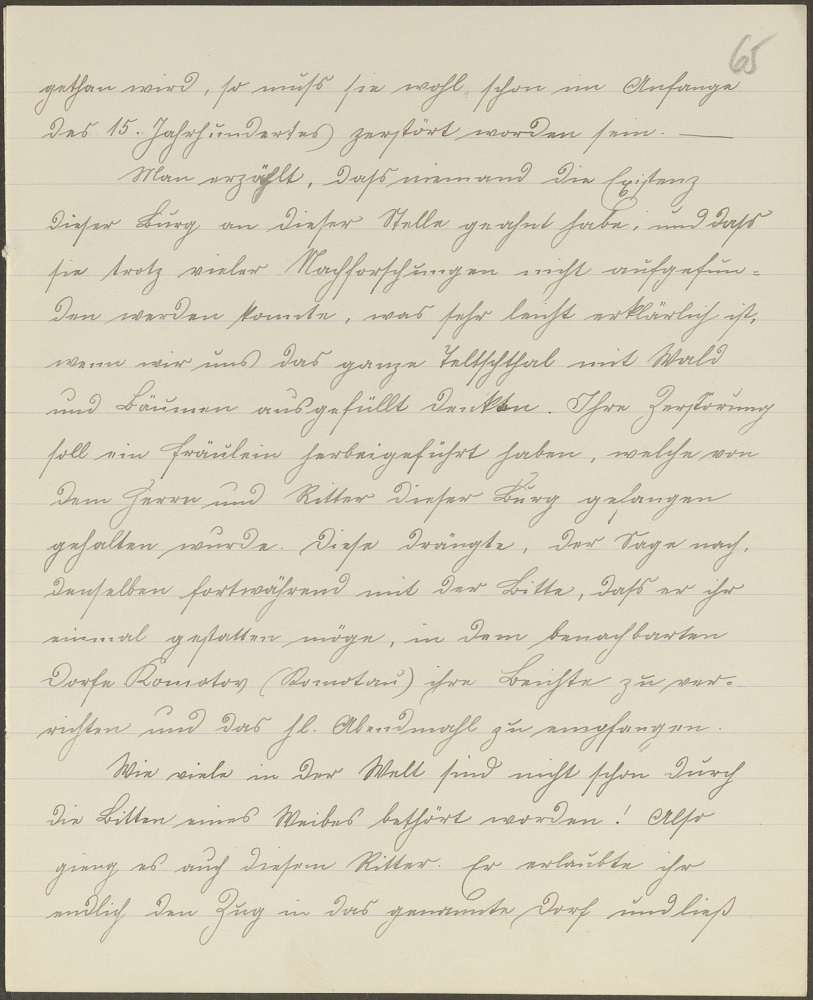 65
gethan wird, so muss sie wohl schon im Anfange
des 15. Jahrhundertes zerstört worden sein. —
Man erzählt, dass niemand die Existenz
dieser Burg an dieser Stelle geahnt habe, und dass
sie trotz vieler Nachforschungen nicht aufgefun-
den werden konnte, was sehr leicht erklärlich ist,
wenn wir uns das ganze Teltschthal mit Wald
und Bäumen ausgefüllt denken. Ihre Zerstörung
soll ein Fräulein herbeigeführt haben, welche von
dem Herrn und Ritter dieser Burg gefangen
gehalten wurde. Diese drängte, der Sage nach,
denselben fortwährend mit der Bitte, dass er ihr
einmal gestatten möge, in dem benachbarten
Dorfe Komotov (Komotau) ihre Beichte zu ver-
richten und das hl. Abendmahl zu empfangen.
Wie viele in der Welt sind nicht schon durch
die Bitten eines Weibes bethört worden! Also
gieng es auch diesem Ritter. Er erlaubte ihr
endlich den Zug in das genannte Dorf und ließ